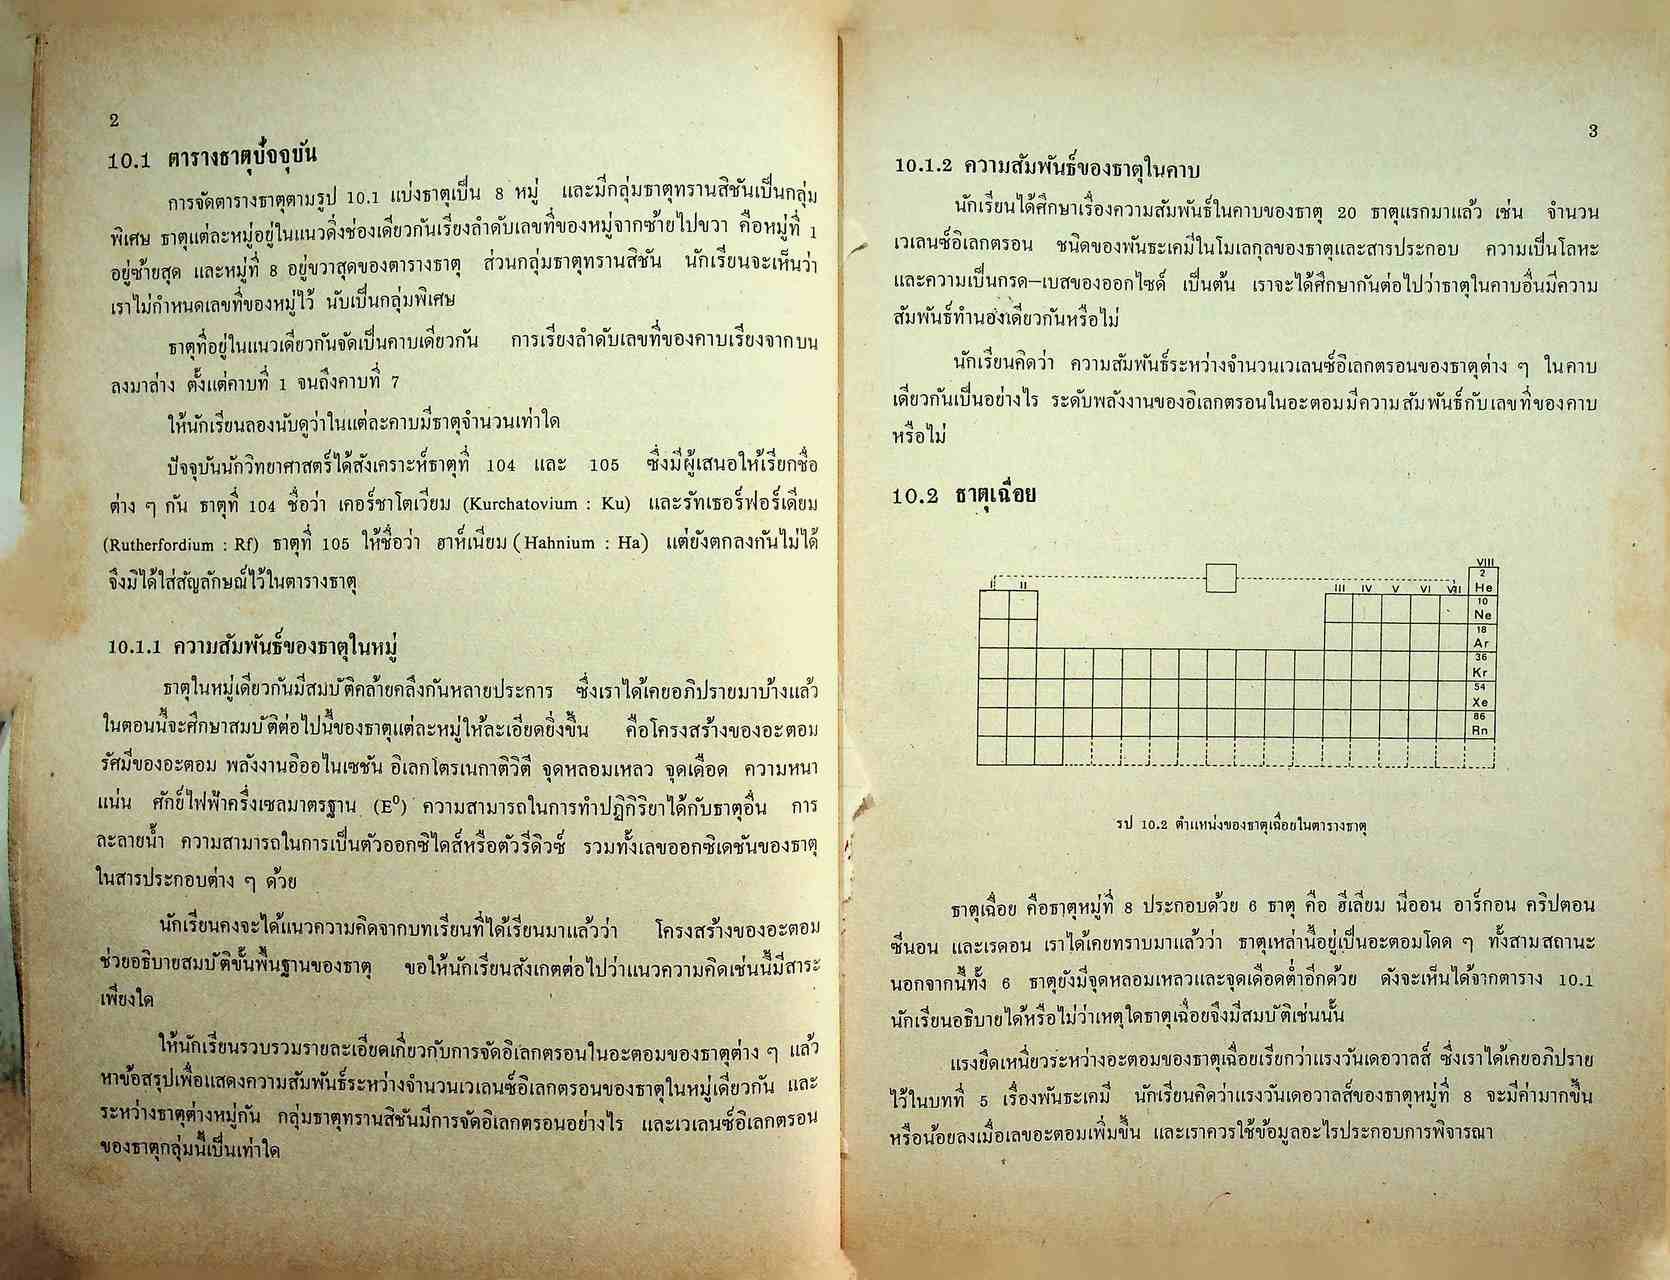 2
10.1 ตารางธาตุปัจจุบัน
การจัดตารางธาตุตามรูป 10.1 แบ่งธาตุเป็น 8 หมู่ และมีกลุ่มธาตุทรานสิชันเป็นกลุ่ม
พิเศษ ธาตุแต่ละหมู่อยู่ในแนวดิ่งช่องเดียวกันเรียงลำดับเลขที่ของหมู่จากซ้ายไปขวา คือหมู่ที่ 1
อยู่ซ้ายสุด และหมู่ที่ 8 อยู่ขวาสุดของตารางธาตุ ส่วนกลุ่มธาตุทรานสิชัน นักเรียนจะเห็นว่า
เราไม่กำหนดเลขที่ของหมู่ไว้ นับเป็นกลุ่มพิเศษ
ธาตุที่อยู่ในแนวเดียวกันจัดเป็นคาบเดียวกัน การเรียงลำดับเลขที่ของคาบเรียงจากบน
ลงมาล่าง ตั้งแต่คาบที่ 1 จนถึงคาบที่ 7
ให้นักเรียนลองนับดูว่าในแต่ละคาบมีธาตุจำนวนเท่าใด
ปัจจุบันนักวิทยาศาสตร์ได้สังเคราะห์ธาตุที่ 104 และ 105 ซึ่งมีผู้เสนอให้เรียกชื่อ
ต่าง ๆ กัน ธาตุที่ 104 ชื่อว่า เคอร์ชาโตเวียม (Kurchatovium : Ku) และรัทเธอร์ฟอร์เดียม
(Rutherfordium : Rf) ธาตุที่ 105 ให้ชื่อว่า ฮาห์เนียม (Hahnium : Ha) แต่ยังตกลงกันไม่ได้
จึงมิได้ใส่สัญลักษณ์ไว้ในตารางธาตุ
10.1.1 ความสัมพันธ์ของธาตุในหมู่
ธาตุในหมู่เดียวกันมีสมบัติคล้ายคลึงกันหลายประการ ซึ่งเราได้เคยอภิปรายมาบ้างแล้ว
ในตอนนี้จะศึกษาสมบัติต่อไปนี้ของธาตุแต่ละหมู่ให้ละเอียดยิ่งขึ้น คือโครงสร้างของอะตอม
รัศมีของอะตอม พลังงานอิออไนเซชัน อิเลกโตรเนกาติวิตี จุดหลอมเหลว จุดเดือด ความหนา
แน่น ศักย์ไฟฟ้าครึ่งเซลมาตรฐาน (E⁰) ความสามารถในการทำปฏิกิริยาได้กับธาตุอื่น การ
ละลายน้ำ ความสามารถในการเป็นตัวออกซิไดส์หรือตัวรีดิวซ์ รวมทั้งเลขออกซิเดชันของธาตุ
ในสารประกอบต่าง ๆ ด้วย
นักเรียนคงจะได้แนวความคิดจากบทเรียนที่ได้เรียนมาแล้วว่า โครงสร้างของอะตอม
ช่วยอธิบายสมบัติขั้นพื้นฐานของธาตุ ขอให้นักเรียนสังเกตต่อไปว่าแนวความคิดเช่นนี้มีสาระ
เพียงใด
ให้นักเรียนรวบรวมรายละเอียดเกี่ยวกับการจัดอิเลกตรอนในอะตอมของธาตุต่าง ๆ แล้ว
หาข้อสรุปเพื่อแสดงความสัมพันธ์ระหว่างจำนวนเวเลนซ์อิเลกตรอนของธาตุในหมู่เดียวกัน และ
ระหว่างธาตุต่างหมู่กัน กลุ่มธาตุทรานสิชันมีการจัดอิเลกตรอนอย่างไร และเวเลนซ์อิเลกตรอน
ของธาตุกลุ่มนี้เป็นเท่าใด
3
10.1.2 ความสัมพันธ์ของธาตุในคาบ
นักเรียนได้ศึกษาเรื่องความสัมพันธ์ในคาบของธาตุ 20 ธาตุแรกมาแล้ว เช่น จำนวน
เวเลนซ์อิเลกตรอน ชนิดของพันธะเคมีในโมเลกุลของธาตุและสารประกอบ ความเป็นโลหะ
และความเป็นกรด–เบสของออกไซด์ เป็นต้น เราจะได้ศึกษากันต่อไปว่าธาตุในคาบอื่นมีความ
สัมพันธ์ทำนองเดียวกันหรือไม่
นักเรียนคิดว่า ความสัมพันธ์ระหว่างจำนวนเวเลนซ์อิเลกตรอนของธาตุต่าง ๆ ในคาบ
เดียวกันเป็นอย่างไร ระดับพลังงานของอิเลกตรอนในอะตอมมีความสัมพันธ์กับเลขที่ของคาบ
หรือไม่
10.2 ธาตุเฉื่อย
I II III IV V VI VII VIII
2
He
10
Ne
18
Ar
36
Kr
54
Xe
86
Rn
รูป 10.2 ตำแหน่งของธาตุเฉื่อยในตารางธาตุ
ธาตุเฉื่อย คือธาตุหมู่ที่ 8 ประกอบด้วย 6 ธาตุ คือ ฮีเลียม นีออน อาร์กอน คริปตอน
ซีนอน และเรดอน เราได้เคยทราบมาแล้วว่า ธาตุเหล่านี้อยู่เป็นอะตอมโดด ๆ ทั้งสามสถานะ
นอกจากนี้ทั้ง 6 ธาตุยังมีจุดหลอมเหลวและจุดเดือดต่ำอีกด้วย ดังจะเห็นได้จากตาราง 10.1
นักเรียนอธิบายได้หรือไม่ว่าเหตุใดธาตุเฉื่อยจึงมีสมบัติเช่นนั้น
แรงยึดเหนี่ยวระหว่างอะตอมของธาตุเฉื่อยเรียกว่าแรงวันเดอวาลส์ ซึ่งเราได้เคยอภิปราย
ไว้ในบทที่ 5 เรื่องพันธะเคมี นักเรียนคิดว่าแรงวันเดอวาลส์ของธาตุหมู่ที่ 8 จะมีค่ามากขึ้น
หรือน้อยลงเมื่อเลขอะตอมเพิ่มขึ้น และเราควรใช้ข้อมูลอะไรประกอบการพิจารณา